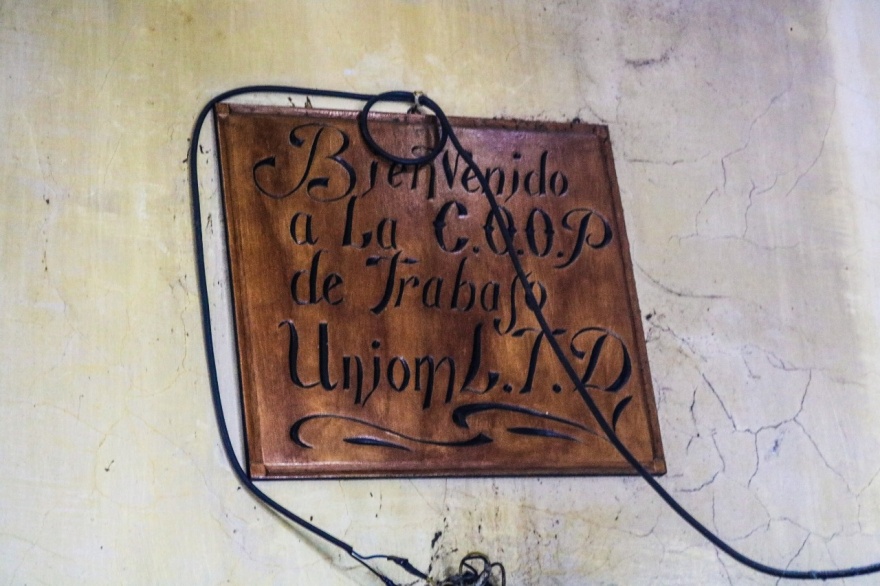 Bienvenido
a La C.O.O.P
de Trabajo
Uniom L.T.D